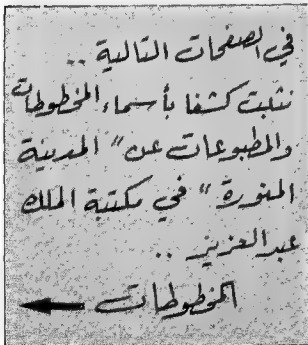 في الصفحات التالية ..
نثبت كشفا بأسماء المخطوطات
والمطبوعات عن " المدينة
المنورة " في مكتبة الملك
عبدالعزيز ..
المخطوطات